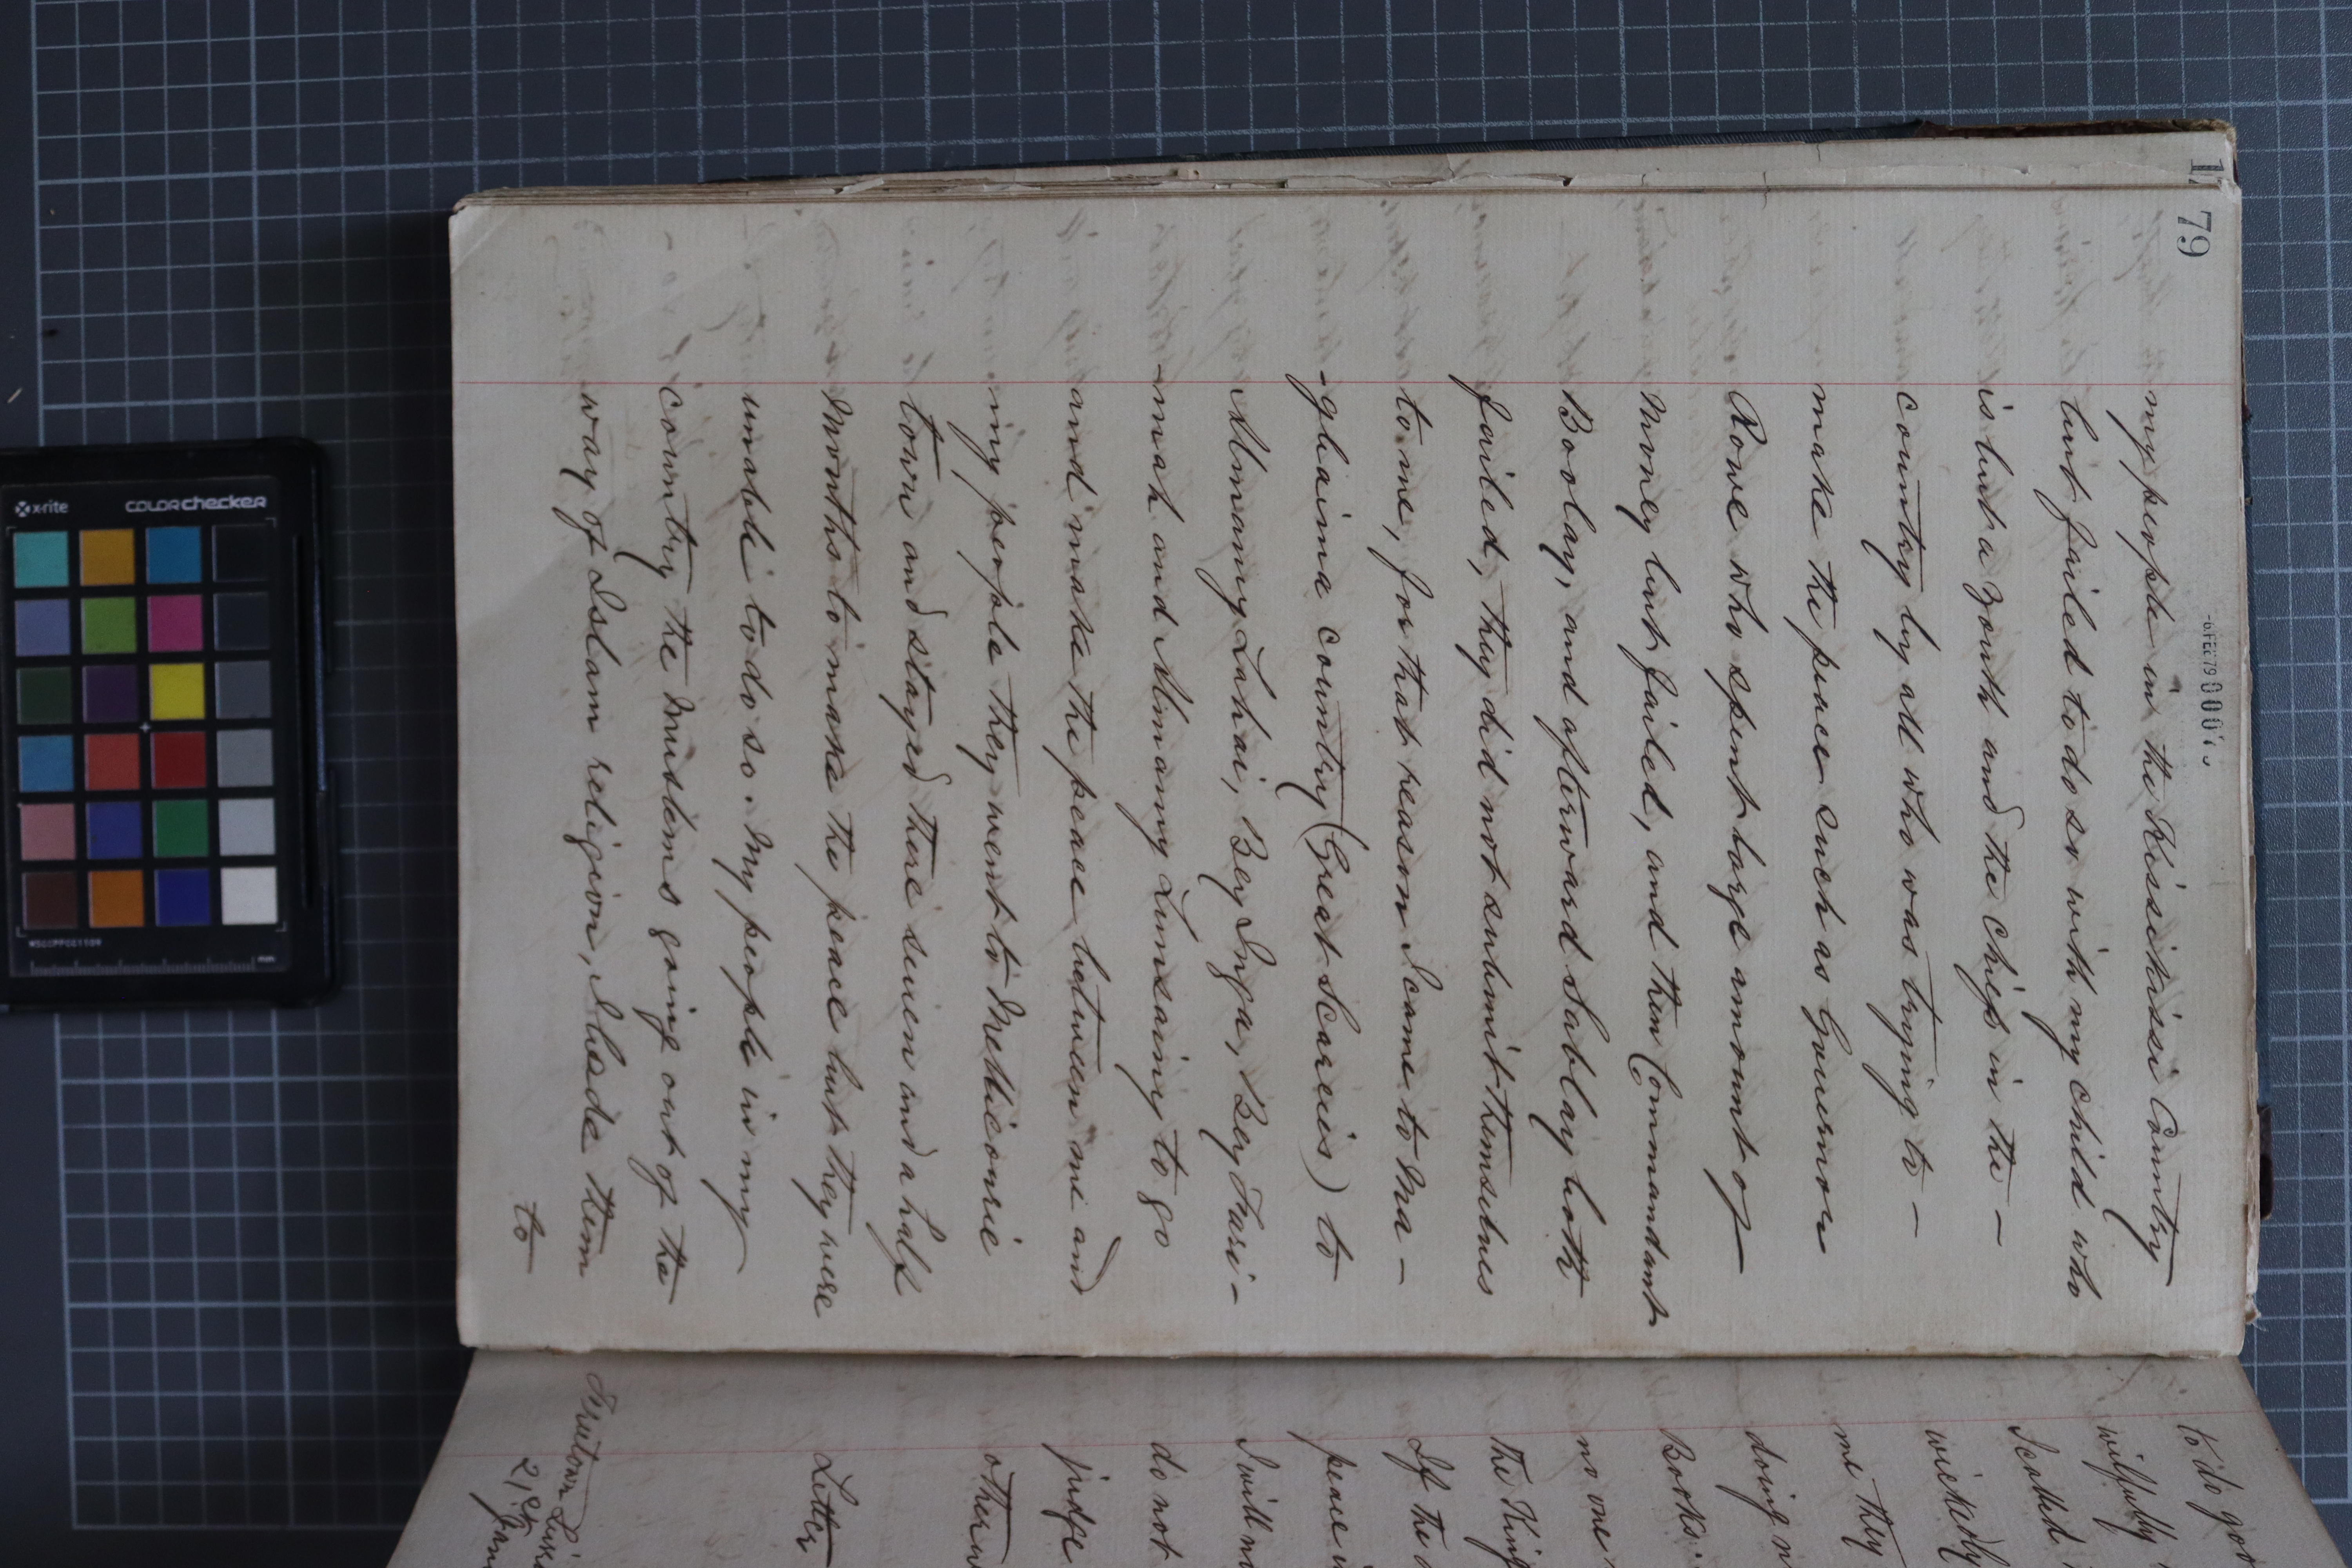 79
my people in the Kissikissi Country
but failed to do so with my child who
is but a youth and the chiefs in the -
country by all who was trying to -
make the peace such as Governor
Rowe who spent large amount of
Money but failed, and then Commandant
Boolay, and afterward Sablay both
failed, they did not submit themselves
to me, for that reason I came to Ma-
-ghaima country (Great Scarcies) to
Almamy Lahai, Bey Inga, Bey Fari-
-mah and Almamy Lunsainy to go
and make the peace between me and
my people they went to Mekiccourie
town and stayed there seven and a half
months to make the peace but they were
unable to do so. My people in my
country the Muslems going out of the
way of Islam religion, I bade them
to
to do go
wilfully
I called
wickedly
me they
doing n
Books.
no one
the King
If the
peace i
I will n
do not
judge
otherw
Letter
21st Jan
x-rite
COLORchecker
mm